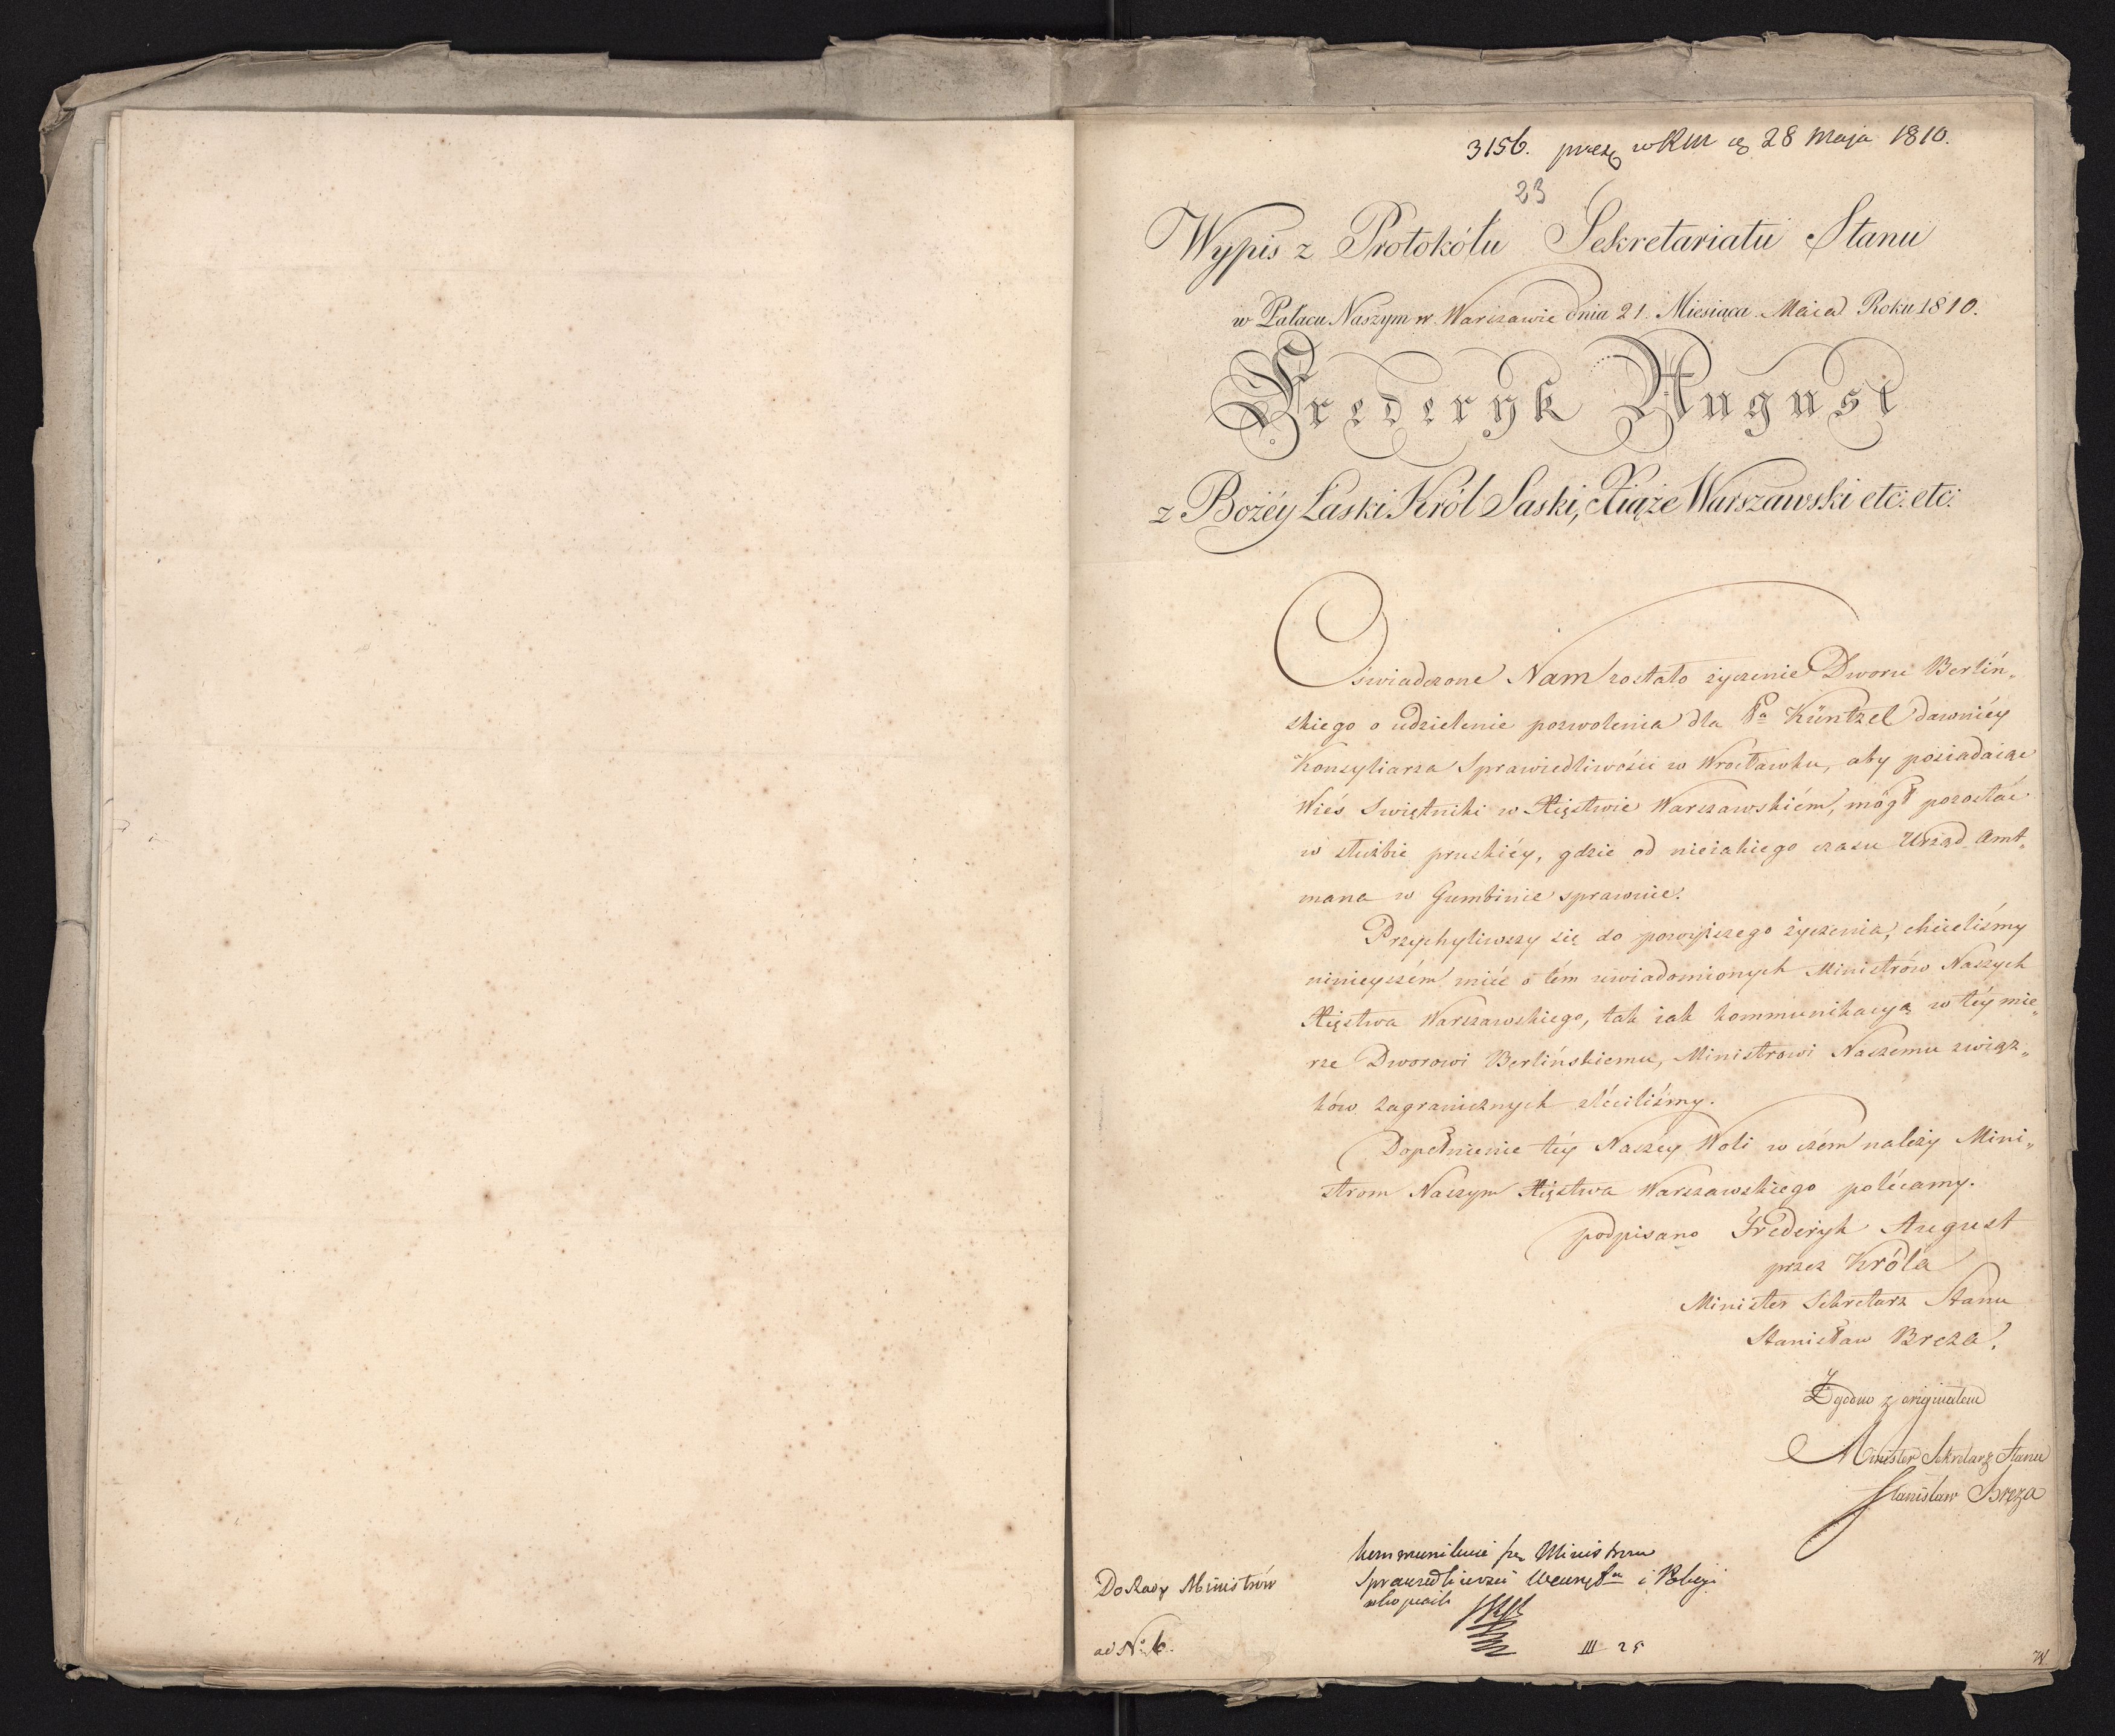 3156. w RM 28 Maja 1810.
23
Wypis z Protokółu Sekretariatu Stanu
w Pałacu Naszym w Warszawie dnia 21. Miesiąca Maia Roku 1810.
Frederyk August
z Bożéy Łaski Król Saski, Xiąże Warszawski etc: etc:
Oświadczone Nam zostało życzenie Dworu Berliń„
skiego o udzielenie pozwolenia dla Pa Küntzel dawniéy
Konsyliarza Sprawiedliwości w Wrocławku, aby posiadaiąc
Wieś Swiętniki w Xięstwie Warszawskiém, mógł pozostać
w służbie pruskiéy, gdzie od nieiakiego czasu Urząd Amt„
mana w Gumbinie sprawuie.
Przychyliwszy się do powyższego życzenia, chcieliśmy
ninieyszém mieć o tém uwiadomionych Ministrów Naszych
Xięstwa Warszawskiego, tak iak kommunikacyą w téy mie„
rze Dworowi Berlińskiemu, Ministrowi Naszemu związ„
ków zagranicznych zleciliśmy.
Dopełnienie téy Naszéy Woli w czém należy Mini„
strom Naszym Xięstwa Warszawskiego polécamy.
podpisano Frederyk August
przez Króla
Minister Sekretarz Stanu
Stanisław Breza.
Zgodno z oryginałem
Minister Sekretarz Stanu
Stanisław Breza
Do Rady Ministrów
Ministrom
Sprawiedliwości i Policyi
ad No 6.
III 25